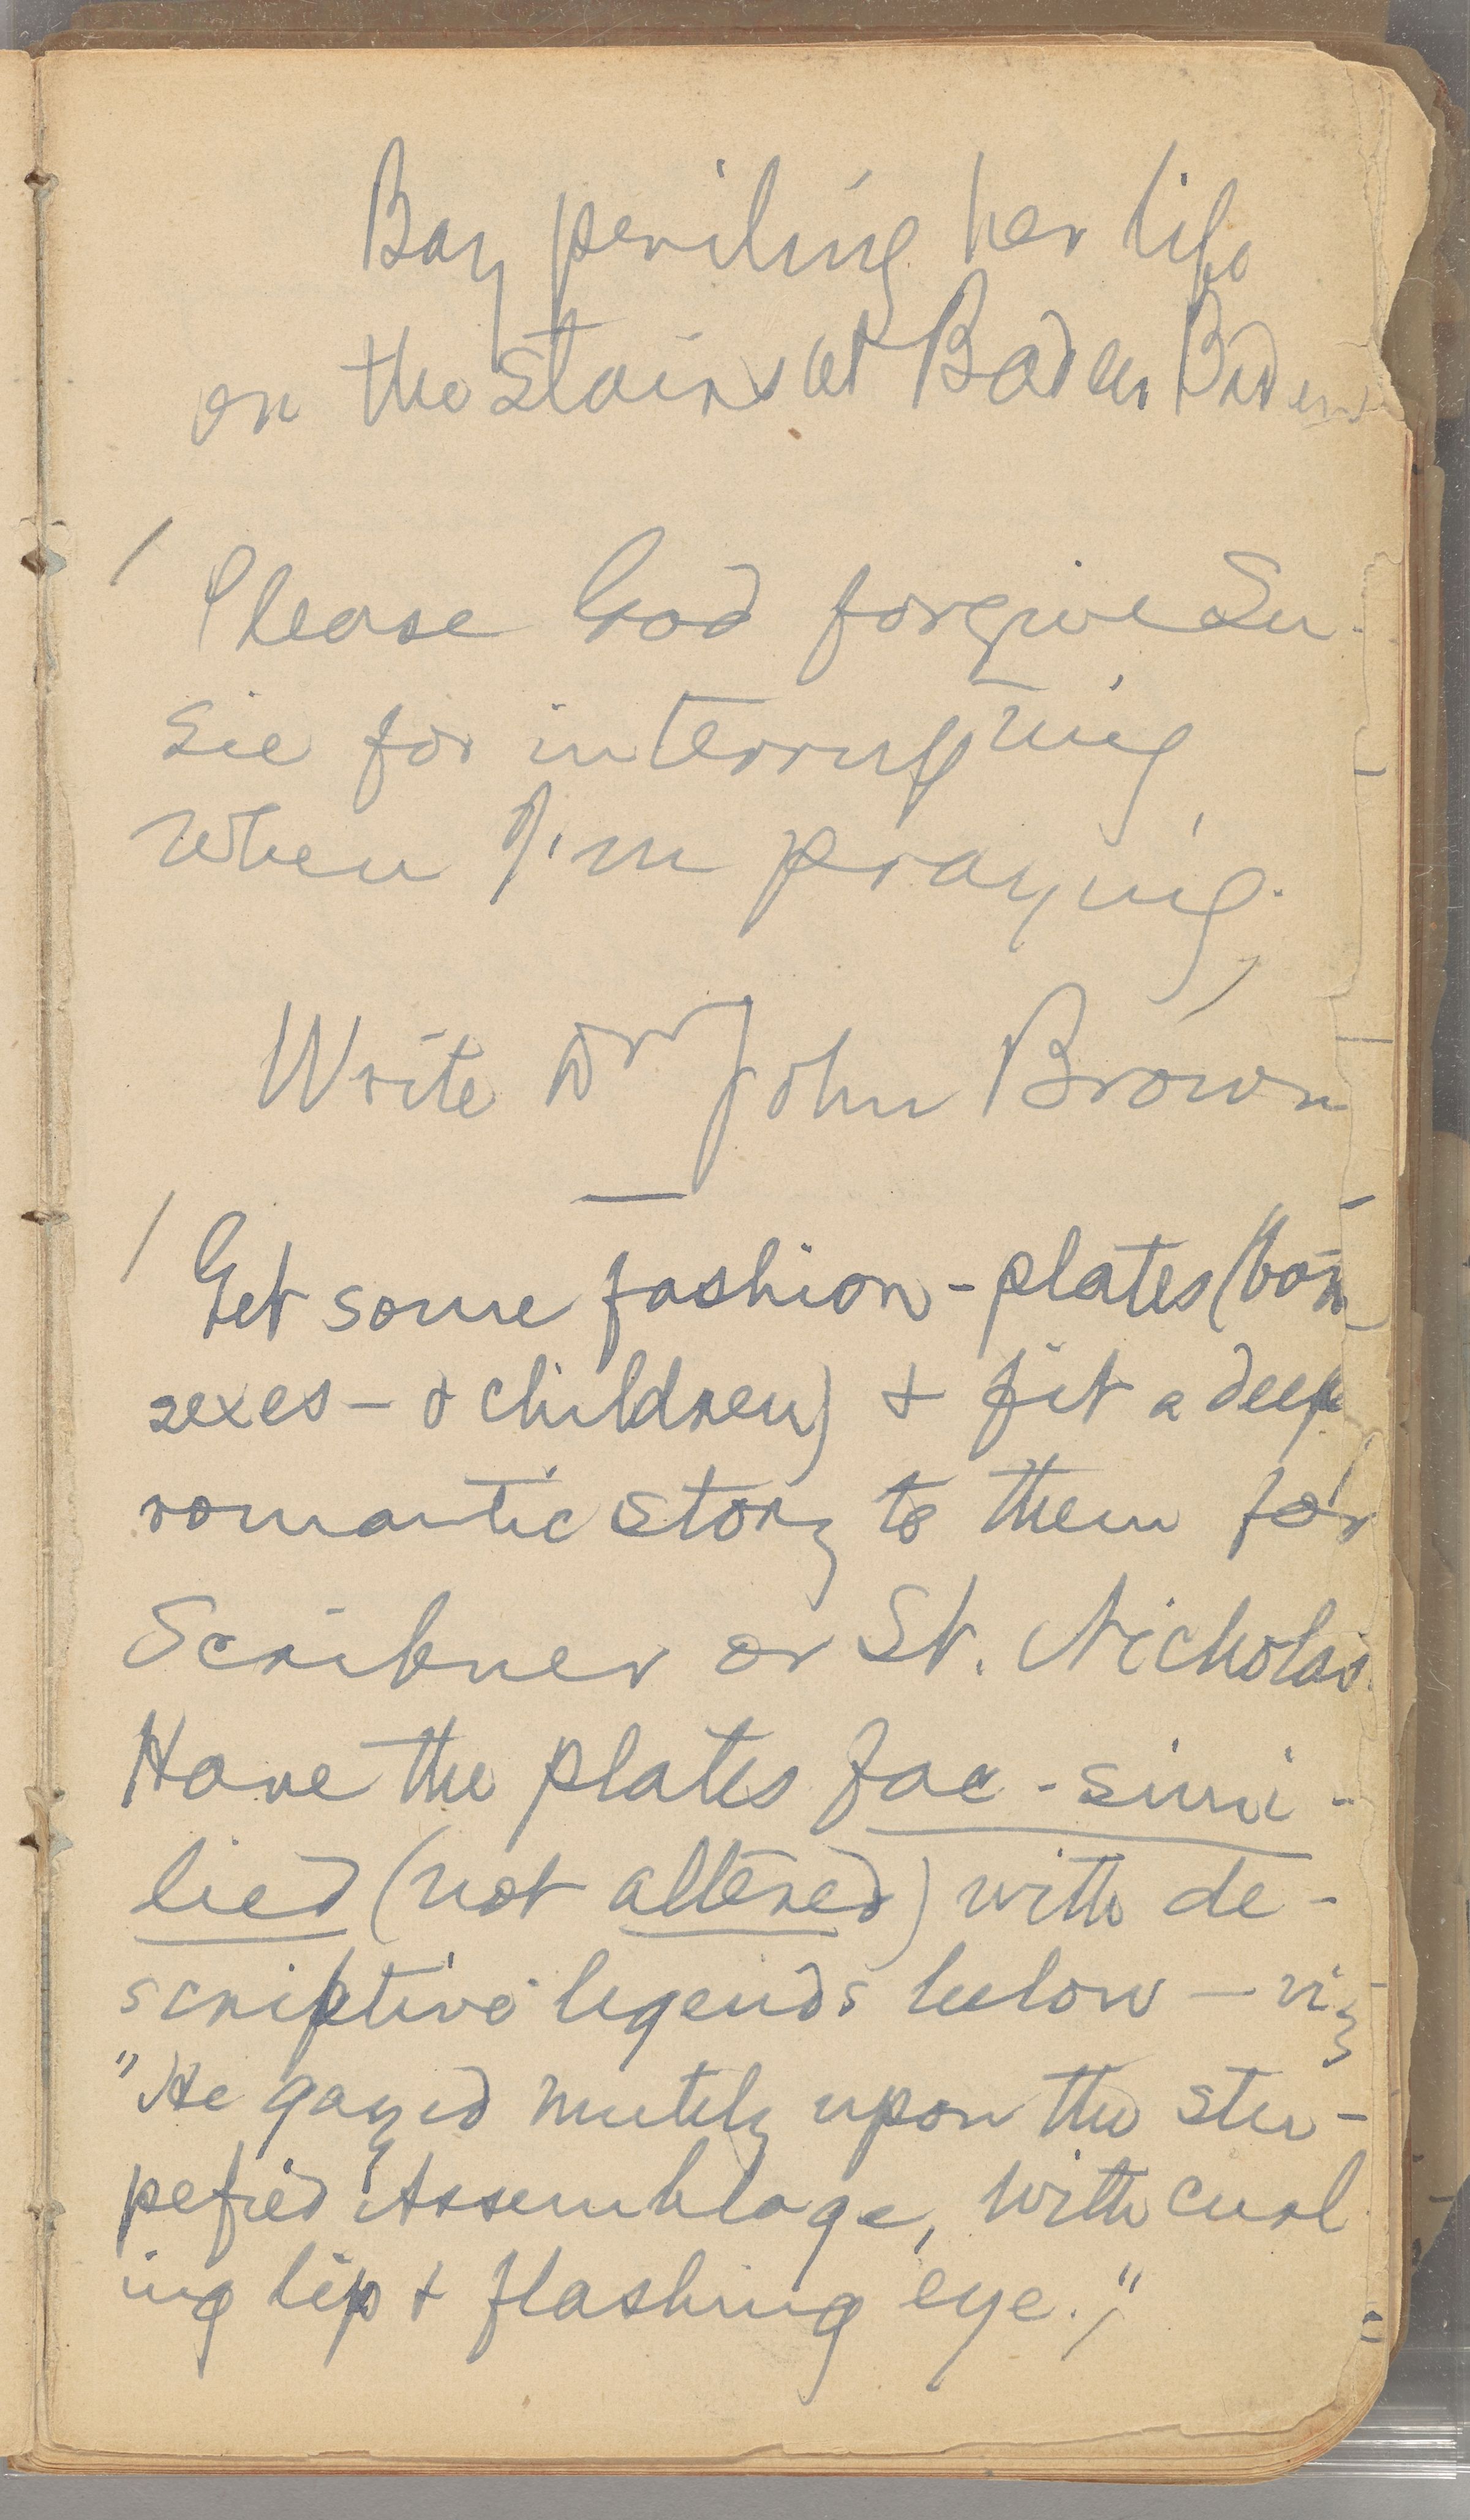 Bay periling her life
on the stairs at Baden Baden
/ Please God forgive Su-
sie for interrupting
when I'm praying.
Write Dr John Brown
/ Get some fashion-plates (both
sexes — & children) & fit a deep
romantic story to them for
Scribner or St. Nicholas.
Have the plates fac-simi-
lied (not altered) with de-
scriptive legends below — viz
"He gazed mutely upon the stu-
pefied Assemblage, with curl
ing lip & flashing eye."